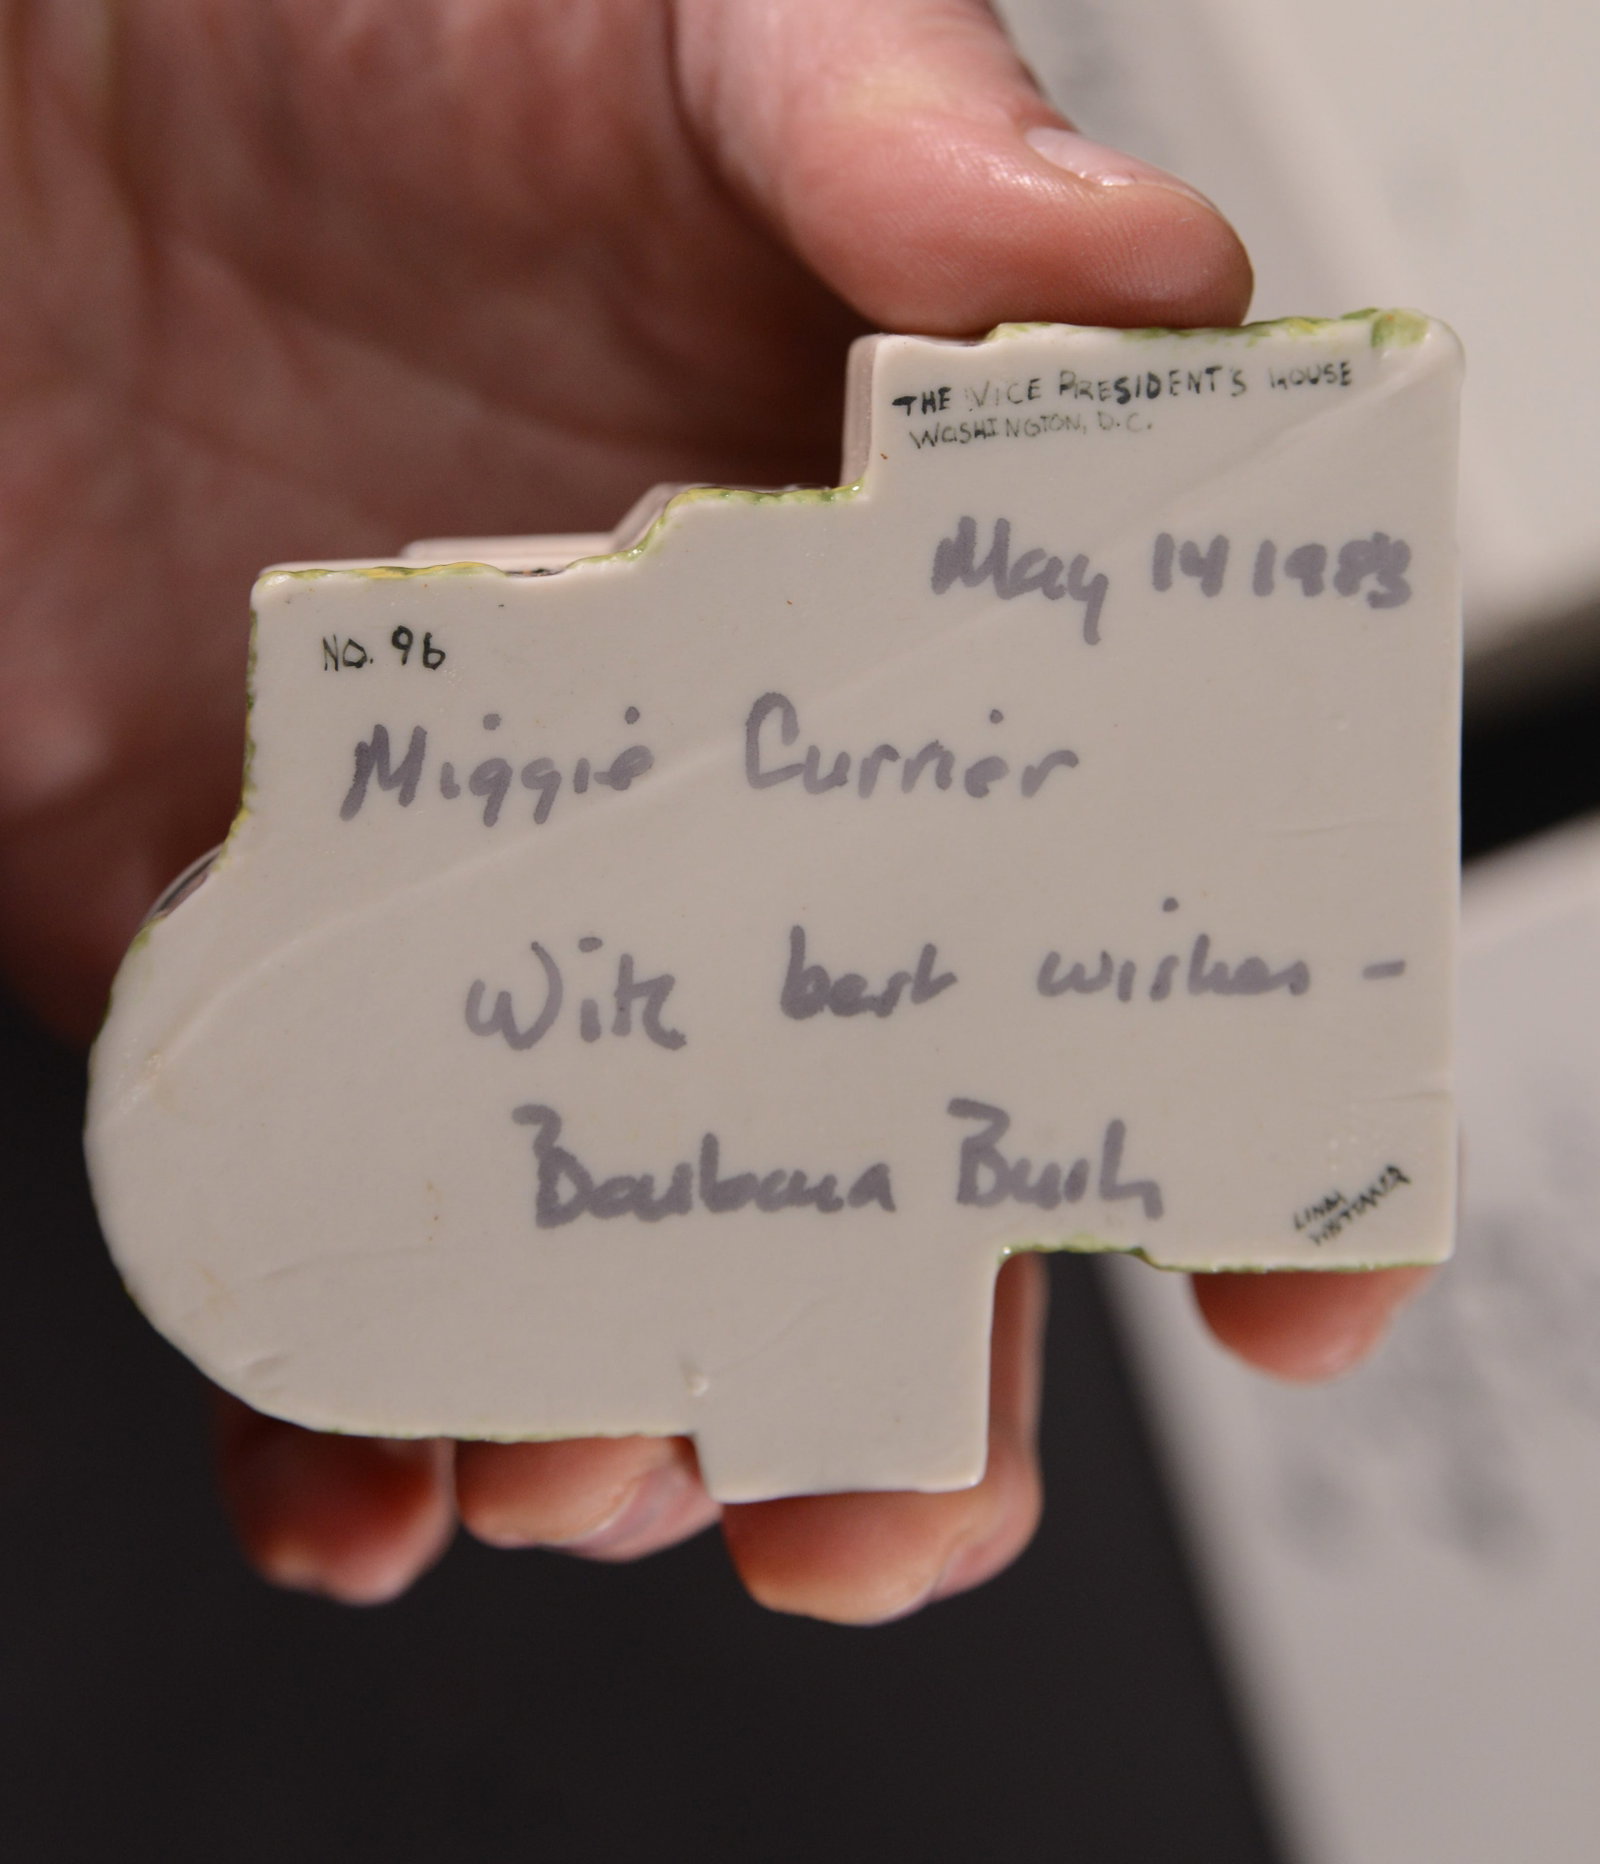 THE VICE PRESIDENT'S HOUSE
WASHINGTON, D.C.
May 14 1983
NO. 96
Miggie Currier
With best wishes -
Barbara Bush
LINDA
WHITTAKER